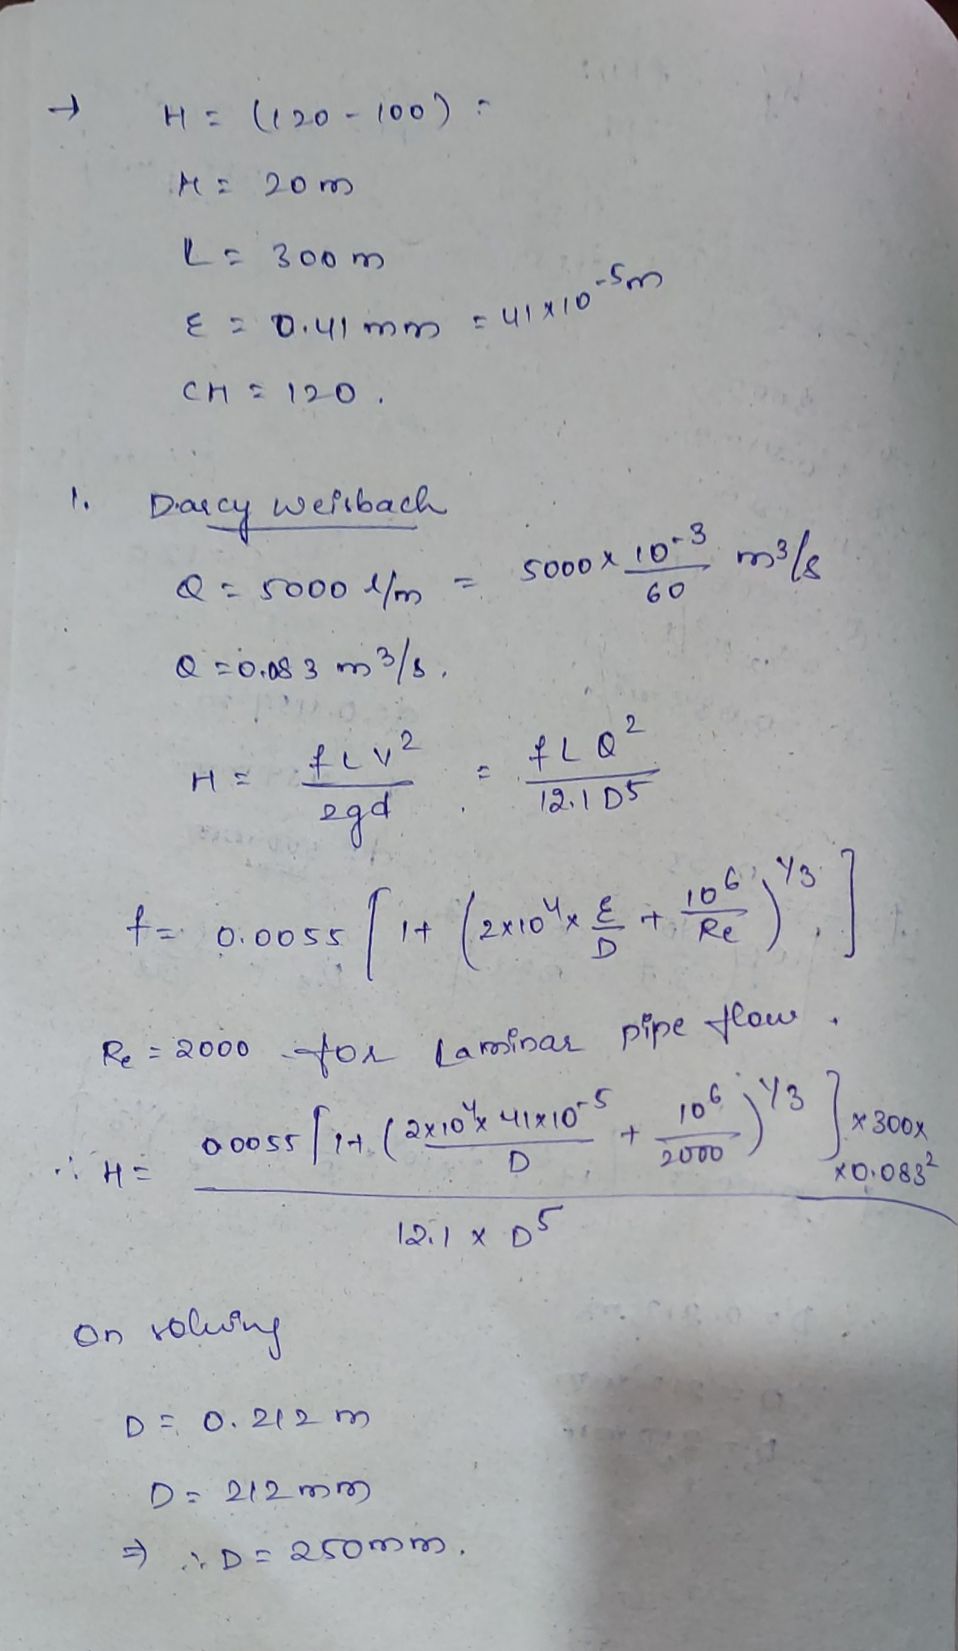 → H = (120 - 100) =
H = 20 m
L = 300 m
ε = 0.41 mm = 41 x 10^-5 m
CH = 120.
1. Darcy weisbach
Q = 5000 l/m = 5000 x 10^-3 / 60 m^3/s
Q = 0.083 m^3/s.
H = fLV^2 / 2gd = fLQ^2 / 12.1 D^5
f = 0.0055 [1 + (2x10^4 x ε/D + 10^6/Re)^1/3.]
Re = 2000 for Laminar pipe flow.
∴ H = 0.0055 [1 + (2x10^4 x 41x10^-5 / D + 10^6 / 2000)^1/3] x 300 x x 0.083^2
12.1 x D^5
On solving
D = 0.212 m
D = 212 mm
⇒ ∴ D = 250 mm.